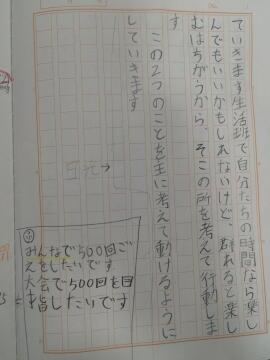 ていきます生活班で自分たちの時間なら楽し
んでもいいかもしれないけど、群れると楽し
むはちがうから、そこの所を考えて行動しま
す
この2つのことを主に考えて動けるように
していきます
みんなで500回ご
えをしたいです
大会で500回を目
指したいです